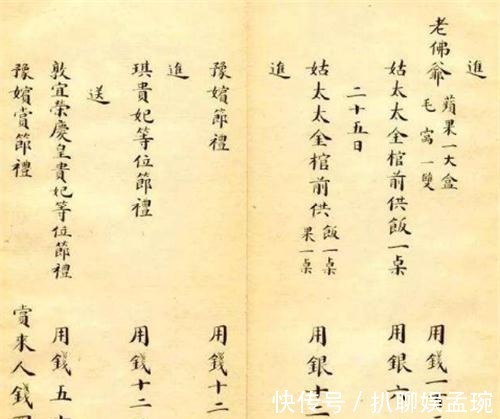 進
老佛爺 蘋果一大盒 毛窩一雙 用錢一
姑太太全棺前供飯一桌 用銀六
二十五日
姑太太全棺前供 飯一桌 果一桌 用銀十
進
豫嬪節禮 用錢十二
進
琪貴妃等位節禮 用錢十二
送
敦宜榮慶皇貴妃等位節禮 用錢五
豫嬪賞節禮 賞來人錢
快传号 / 扒聊娱孟琬